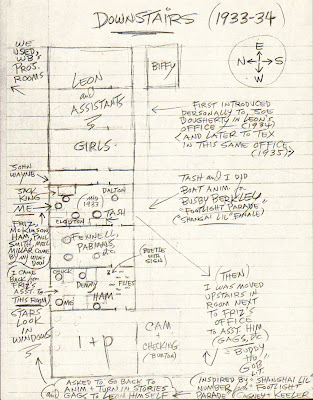 DOWNSTAIRS (1933-34)
WE
USED
WB'S
PROJ.
ROOMS
LEON
and
ASSISTANTS
3
GIRLS.
BIFFY
E
N
S
W
FIRST INTRODUCED
PERSONALLY TO, JOE
DOUGHERTY IN LEON'S
OFFICE (1934)
(AND LATER TO TEX
IN THIS SAME OFFICE
(1935)
JOHN
WAYNE
JACK
KING
ME
DALTON
(MID
1933)
TASH
CLOPTON
TASH AND I DID
BOAT ANIM. for
BUSBY BERKELEY
"FOOTLIGHT PARADE"
("SHANGAI LIL" FINALE)
FRIZ,
McKIMSON
HAM, PAUL
SMITH, MELL
MILLAR COME
BY MY WINDOW
FENNELL,
PABIAN,
etc.
I CAME
BACK for
FRIZ'S
ASST. TO
THIS ROOM
CHUCK
DENNY
ME
HAM
FILES
BEETLE
WITH
SIGN
(THEN)
I WAS MOVED
UPSTAIRS IN
ROOM NEXT
TO FRIZ'S
OFFICE
TO ASST. HIM
(GAGS, etc.
"BUDDY
THE
GOB"
STARS
LOOK
IN
WINDOWS
I + P
CAM
+
CHECKING
(BURTON)
(INSPIRED BY "SHANGHAI LIL"
NUMBER FOOTLIGHT
PARADE (CAGNEY + KEELER
ASKED TO GO BACK TO
ANIM + TURN IN STORIES
and GAGS TO LEON HIMSELF